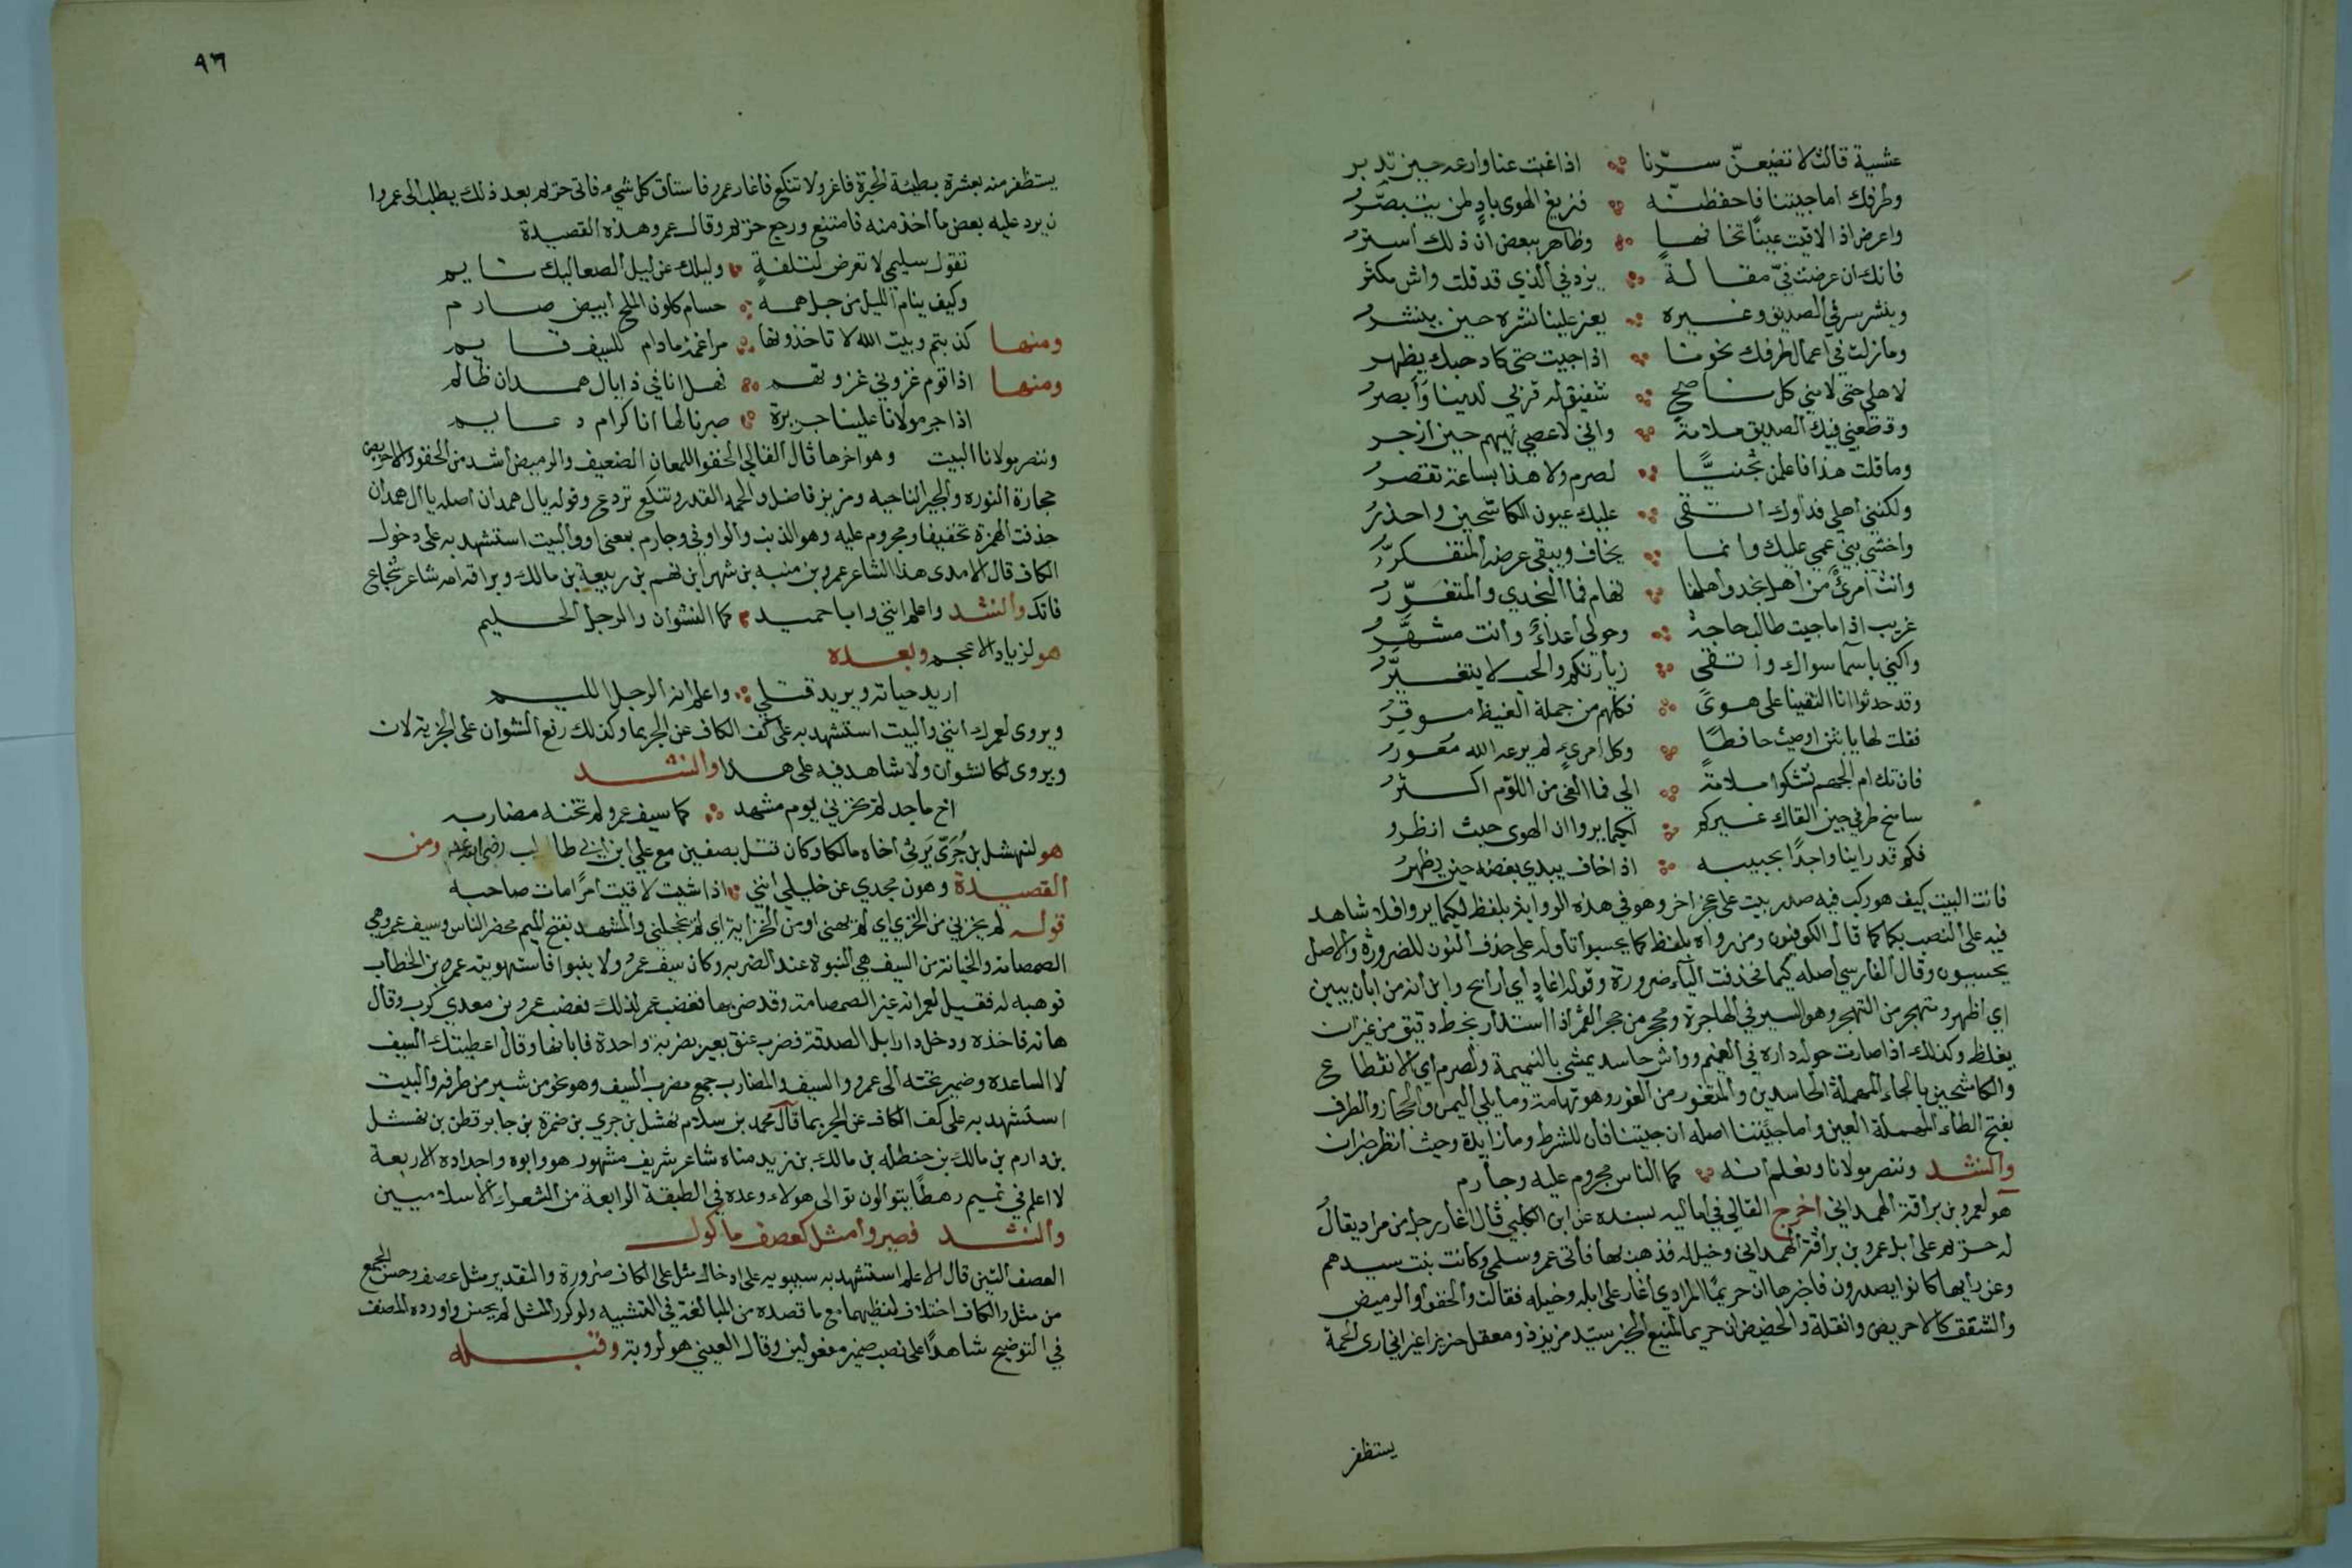 عشية قالت لا تضيعنّ سرّنا اذا غبت عنا وارعه حين تدبر
وطرفك اما جيتنا فاحفظنّه فزيغ الهوى بادٍ لمن يتبصّرُ
واعرض اذا لاقيت عينًا تخافها وظاهر ببعض ان ذلك استرُ
فانك ان عرضت فيّ مقالةً يزد في الذي قد قلت واش مكثر
وينشر سرفي الصديق وغيره يعز علينا نشره حين ينشرُ
وما زلت في اعمال طرفك نحونا اذا جيت حتى كاد حبك يظهر
لاهلي حتى لامني كل ناصح شفيق له قربى لدينا وَأبصرُ
وقطعني فيك الصديق ملامة واني لاعصي نهيهم حين ازجر
وما قلت هذا فاعلمن تجنبيًّا لصرم ولا هذا بساعة تقصرُ
ولكنني اهلي فداؤك اتقى عليك عيون الكاشحين واحذرُ
واخشى بني عمي عليك وانما يخاف ويبقي عرضه المتفكّرُ
وانت امرئٌ من اهل نجد واهلنا تهام فما النجدي والمتغَوّرُ
غريب اذا ما جيت طالب حاجة وحولي اعداءٌ وأنت مشهَّرُ
واكني باسمآ سواك واتقي زيارتكم والحب لا يتغيَّرُ
وقد حدثوا انا التقينا على هوىً فكلهم من جملة الغيظ موقِرُ
فقلت لها يا بثن اوصيت حافظًا وكل امرىءٍ لم يرعه الله مُعْورُ
فان تك ام الجهم تشكوا ملامةً الي فما القى من اللوّم اكثرُ
سامنح طرفي حين القاك غيركم لكيما يروا ان الهوى حيث انظرو
فكم قد راينا واجدًا بحبيبه اذا خاف يبدي بغضه حين يظهرُ
فانت البيت كيف هو ركب فيه صدر بيت على عجز اخر وهو في هذه الرواية بلفظ لكيما يروا فلا شاهد
فيه على النصب بكما كما قال الكوفيون ومن رواه بلفظ كما يحسبوا تأوله على حذف النون للضرورة والاصل
يحسبون وقال الفارسي اصله كيما فحذفت اليآء ضرورة وقوله اغادٍ أي أرايح وابن أنه من ابان يبين
اي اظهر وتهجر من التهجر وهو السير في الهاجرة ومحجر من حجر القمر اذا استدار بخط دقيق من غير ان
يغلظ وكذلك اذا صارت حوله داره في الغيم وواش حاسد يمشي بالنميمة ولصرم أي لانقطاع
والكاشحين بالحاء المهملة الحاسدين والمتغور من الغور وهو تهامة وما يلي اليمن والحجاز والطرف
بفتح الطاء المهملة العين واما جيَتننا اصله ان جيتنا فان للشرط وما زايدة وحيث انظر خبر ان
والنشد وننصر مولانا ونعلم انه كما الناس مجروم عليه وجارم
هو لعمرو بن براقة الهمداني اخرج القالي في اماليه بسنده عن ابن الكلبي قال اغار رجل من مراد يقال
له حزيم على ابل عمرو بن براقة الهمداني وخيل له فذهب بها فأتى عمرو سلمى وكانت بنت سيدهم
وعن رايها كانوا يصدرون فاخبرها ان حريمًا المرادي اغار على ابله وخيله فقالت والخفو والوميض
والشقق كالاحريض والقلة والحضيض ان حريما لمنيع الحيز سيّد مزيز ذو معقل حريز غير اني ارى الحمة
يستظفر
٩٦
يستظفر منه بعشرة بطيئة الجبرة فاغر ولا تنكع فاغار عمرو فاستاق كل شيء فاتى حزيم بعد ذلك يطلب الى عمروا
ن يرد عليه بعض ما اخذ منه فامتنع ورجع حزيم وقال عمرو هذه القصيدة
تقول سليمى لا تعرض لتلفةٍ وليلك عن ليل الصعاليك نايم
وكيف ينام الليل من جل همه حسام كلون الملح ابيض صارم
ومنها كذبتم وبيت الله لا تاخذونها مراغمة مادام للسيف قايم
ومنها اذا قوم غزوني غزوتهم فهل انا في ذا يال همدان ظالم
اذا جر مولانا علينا جريرة صبرنا لها انا كرام دعايم
وننصر مولانا البيت وهو اخرها قال القالي الخفو اللمعان الضعيف والوميض أشد من الخفو والاحريض
حجارة النوره والحيز الناحيه ومزيز فاضل والحمه القدر وتنكع تردع وقوله يال همدان اصله يا آل همدان
حذفت الهمزة تخفيفا ومجروم عليه وهو الذنب والواو في وجارم بمعنى او والبيت استشهد به على دخول
الكاف قال الامدي هذا الشاعر عمرو بن منبه بن شهر ابن نهم بن ربيعة بن مالك وبراقة امه شاعر شجاع
فاتك والنشد واعلم انني وابا حميد كما النشوان والرجل الحليم
هو لزياد الاعجم وبعده
اريد حياته ويريد قتلي واعلم انه الرجل اللييم
ويروى لعمرك انني والبيت استشهد به على كف الكاف عن الجر بما وكذلك رفع النشوان على الخبرية لان
ويروى لكالنشوان ولا شاهد فيه على هذا والنشد
اخ ماجد لم يخزني يوم مشهد كما سيف عمرو لم تخنه مضاربه
هو لنهشل بن جُرَيّ يَرثي أخاه مالكا وكان قتل بصفين مع علي ابن ابي طالب رضي الله عنه ومن
القصيدة وهون مجدي عن خليلي انني اذا شيت لاقيت امرًا مات صاحبه
قوله لم يخزني من الخزي اي لم يهني او من الخزاية اي لم يخجلني والمشهد بفتح الميم محضر الناس وسيف عمرو هي
الصمصامة والخيانة من السيف هي النبوة عند الضربه وكان سيف عمرو لا ينبوا فاستهوبه عمر بن الخطاب
فوهبه له فقيل لعمر انه غير الصمصامة وقد ضن بها فغضب عمر لذلك فغضب عمرو بن معدي كرب وقال
هاته فاخذه ودخل دار ابل الصدقة فضرب عنق بعير بضربة واحدة فابانها وقال اعطيتك السيف
لا الساعده وضمير تخنه الى عمرو والسيف والمضارب جمع مضرب السيف وهو نحو من شبر من طرفه والبيت
استشهد به على كف الكاف عن الجر بما قال محمد بن سلام نهشل بن جري بن ضمرة بن جابر قطن بن نهشل
بن دارم بن مالك بن حنظله بن مالك بن زيد مناه شاعر شريف مشهور هو وابوه واجداده الاربعة
لا اعلم في تميم رهطًا يتوالون توالى هولاء وعده في الطبقة الرابعة من الشعراء الاسلاميين
والنشد فصيروا مثل كعصف ماكول
العصف التبن قال الاعلم استشهد به سيبويه على ادخال مثل على الكاف ضرورة والتقدير مثل عصف وحسن الجمع
من مثل والكاف اختلاف لفظيهما مع ما قصده من المبالغة في التشبيه ولو كرر المثل لم يحسن واورده المصنف
في التوضيح شاهدًا على نصب ضمير مفعولين وقال العيني هو لروبة وقبله